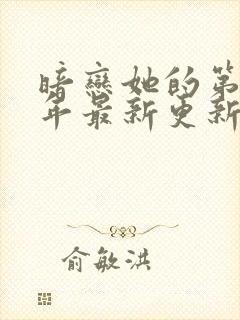 暗戀她的第
年最新更新
俞敏洪